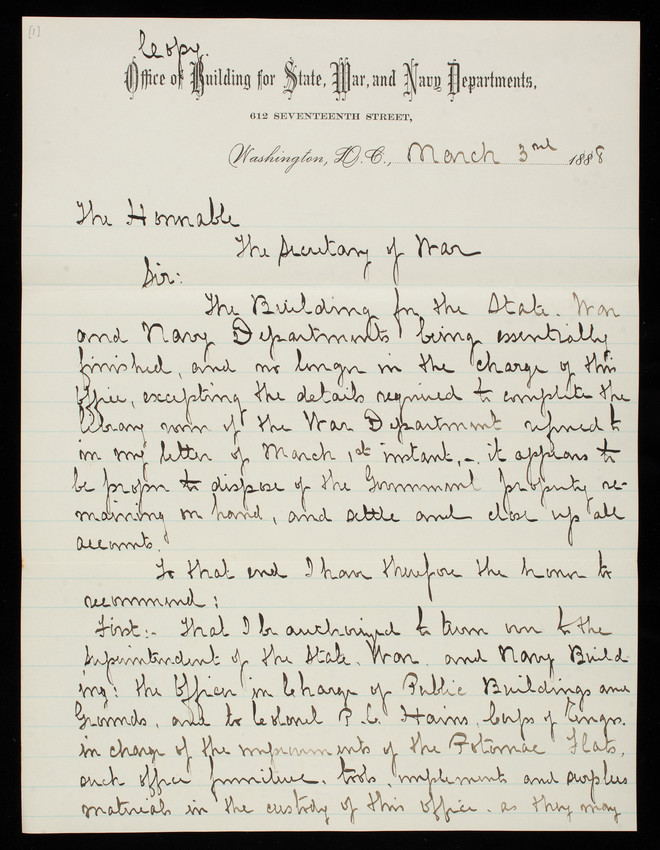 [1]
Copy.
Office of Building for State, War, and Navy Departments,
612 SEVENTEENTH STREET,
Washington, D.C., March 3rd 1888
The Honorable
The Secretary of War
Sir:
The Building for the State. War
and Navy Departments being essentially
finished, and no longer in the charge of this
office, excepting the details required to complete the
library room of the War Department referred to
in my letter of March 1st instant, - it appears to
be proper to dispose of the Government property re-
maining on hand, and settle and close up all
accounts.
To that end I have therefore the honor to
recommend:
First:- That I be authorized to turn over to the
Superintendent of the State. War. and Navy Build-
ing: the Officer in Charge of Public Buildings and
Grounds, and to Colonel P.C. Hains, Corps of Engrs.
in charge of the improvements of the Potomac Flats,
such office furniture. tools, implements and surplus
materials in the custody of this office. as they may